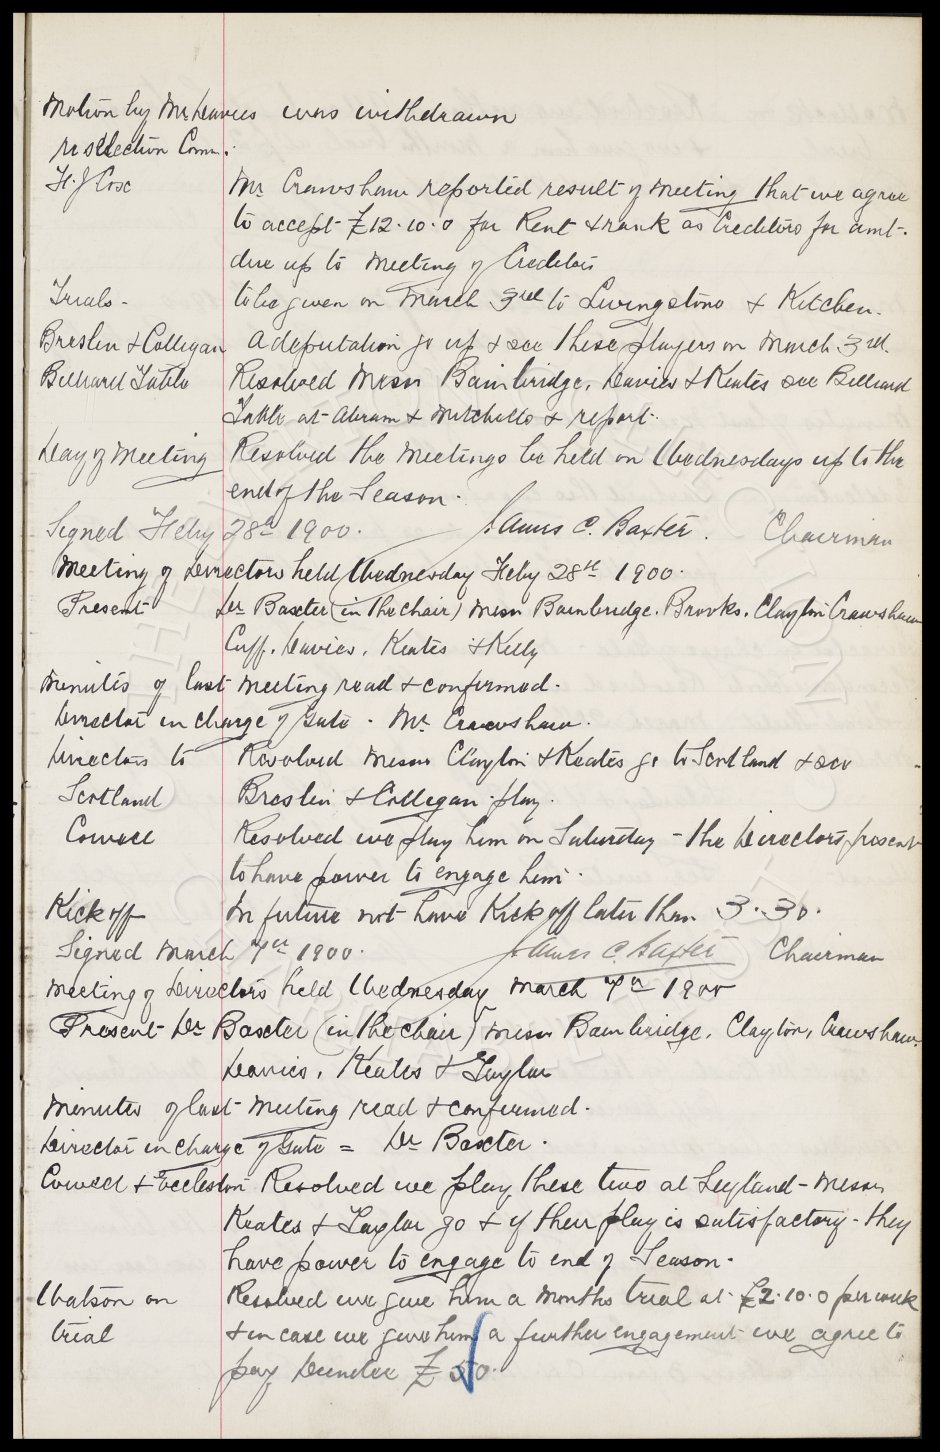 Motion by Mr Davies was withdrawn
re selection Comm.
H. J Cox Mr Crawshaw reported result of meeting that we agree
to accept £12.10.0 for Rent & rank as Creditors for amt.
due up to meeting of Creditors
Trials - to be given on March 3rd to Livingstone & Kitchen.
Breslin & Colligan A deputation go up & see these players on March 3rd.
Billiard Table Resolved Messrs Bainbridge, Davies & Keates see Billiard
Table at Abram & Mitchells & report.
Day of Meeting Resolved the Meetings be held on Wednesdays up to the
end of the Season.
Signed Feby 28th 1900. James C. Baxter. Chairman
Meeting of Directors held Wednesday Feby 28th 1900.
Present Dr Baxter (in the chair) Messrs Bainbridge. Brooks. Clayton Crawshaw
Cuff. Davies. Keates & Kelly
Minutes of last meeting read & confirmed.
Director in charge of Gate - Mr. Crawshaw.
Directors to Resolved Messrs Clayton & Keates go to Scotland & see
Scotland Breslin & Colligan play.
Cowell Resolved we play him on Saturday - the Directors present
to have power to engage him.
Kick off In future not have Kick off later than 3.30.
Signed March 7th 1900. James C. Baxter Chairman
Meeting of Directors held Wednesday March 7th 1900
Present Dr Baxter (in the chair) Messrs Bainbridge, Clayton, Crawshaw.
Davies, Keates & Taylor
Minutes of last meeting read & confirmed.
Director in charge of Gate = Dr Baxter.
Cowell & Eccleston Resolved we play these two at Leyland - Messrs
Keates & Taylor go & if their play is satisfactory - they
have power to engage to end of Season.
Watson on Resolved we give him a months trial at £2.10.0 per week
trial & in case we give him a further engagement we agree to
pay Dundee £50.